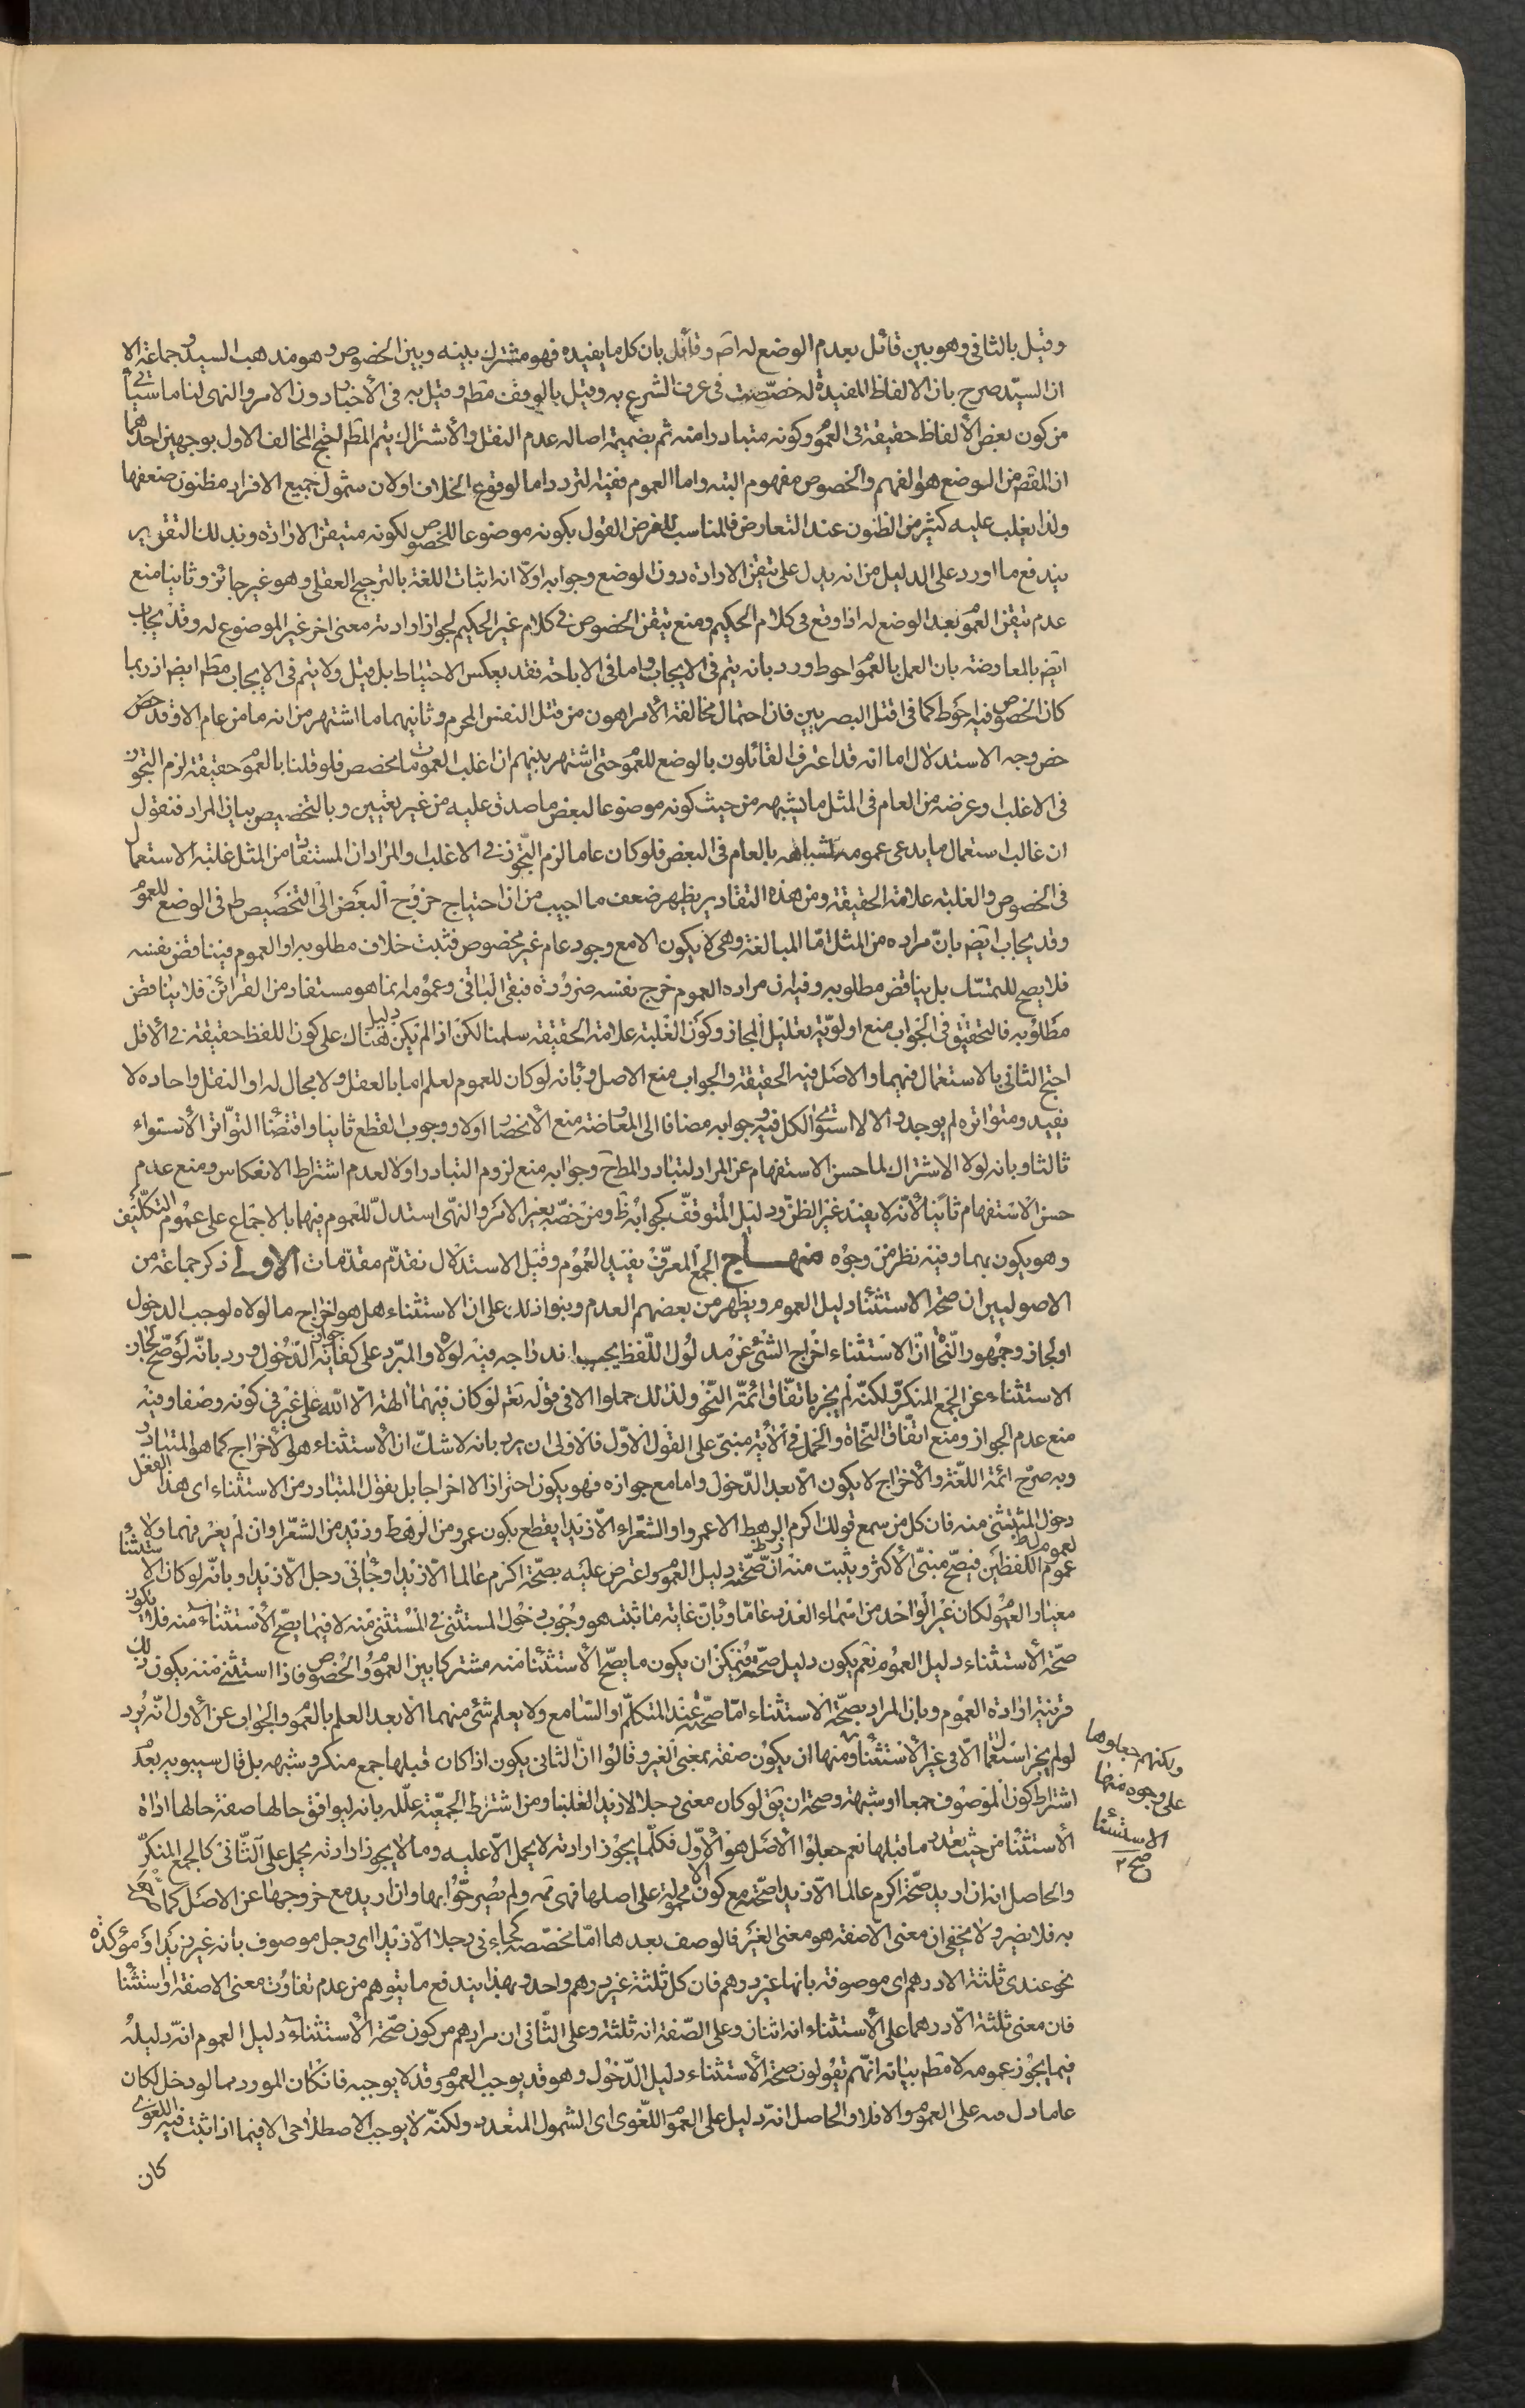 وقيل بالثاني وهو بين قائل بعدم الوضع له اصم وقائل بان كل ما يفيده فهو مشترك بينه وبين الخصوص وهو مذهب السيد وجماعة الا
ان السيد صرح بان الالفاظ المفيدة له خصصت في عرف الشرع به وقيل بالوقف مطم وقيل به في الأخبار دون الامر والنهى لنا ما سيأتي
من كون بعض الألفاظ حقيقة في العموم وكونه متبادرا منه ثم بضميمة اصالة عدم النقل والأشتراك يتم المطم احتج المخالف الاول بوجهين احدهما
ان المقصم من الوضع هو الفهم والخصوص مفهوم البتة واما العموم ففيه التردد اما لوقوع الخلاف اولان شمول جميع الافراد مظنون ضعفها
ولذا يغلب عليه كثير من الظنون عند التعارض فالمناسب للغرض القول بكونه موضوعا للخصوص لكونه متيقن الارادة وبذلك التقرير
يندفع ما اورد على الدليل من انه يدل على تيقن الارادة دون الوضع وجوابه اولا انه اثبات اللغة بالترجيح العقلى وهو غير جائز وثانيا منع
عدم تيقن العموم بعد الوضع له اذا وقع في كلام الحكيم ومنع تيقن الخصوص في كلام غير الحكيم لجواز ارادته معنى اخر غير الموضوع له وقد يجاب
ايضم بالمعارضة بان العمل بالعموم احوط ورد بانه يتم في الايجاب واما في الاباحة فقد يعكس الاحتياط بل قيل ولا يتم في الايجاب مطم ايضم اذ ربما
كان الخصوص فيه احوط كما في اقتل البصريين فان احتمال مخالفة الأمر اهون من قتل النفس المحرم وثانيهما ما اشتهر من انه ما من عام الا وقد خص
خص وجه الاستدلال اما انه قد اعترف القائلون بالوضع للعموم حتى اشتهر بينهم ان اغلب العمومات مخصص فلو قلنا بالعموم حقيقة لزم التجوز
في الاغلب وغرضه من العام في المثل ما يشبهه من حيث كونه موضوعا لبعض ما صدق عليه من غير تعيين وبالتخصيص بيان المراد فنقول
ان غالب استعمال ما يدعى عمومه لشباهه بالعام في البعض فلو كان عاما لزم التجوز في الاغلب والمراد ان المستفاد من المثل غلبة الاستعمال
في الخصوص والغلبة علامة الحقيقة ومن هذه التقادير يظهر ضعف ما اجيب من ان احتياج خروج البعض الى التخصيص ظم في الوضع للعموم
وقد يجاب ايضم بان مراده من المثل اما المبالغة وهي لا يكون الا مع وجود عام غير مخصوص فثبت خلاف مطلوبه او العموم فيناقض نفسه
فلا يصح للتمسك بل يناقض مطلوبه وفيه ان مراده العموم خرج نفسه ضرورة فبقى الباقي وعمومه انما هو مستفاد من القرائن فلا يناقض
مطلوبه فالتحقيق في الجواب منع اولوية تقليل المجاز وكون الغلبة علامة الحقيقة سلمنا لكن اذا لم يكن هناك دليل على كون اللفظ حقيقة في الأقل
احتج الثاني بالاستعمال فيهما والاصل فيه الحقيقة والجواب منع الاصل وبانه لو كان للعموم لعلم اما بالعقل ولا مجال له او النقل واحاده لا
يفيد ومتواتره لم يوجد والا لاستوى الكل فيه وجوابه مضافا الى المعارضة منع الأنحصار اولا ووجوب القطع ثانيا واقتضاء التواتر الأستواء
ثالثا وبانه لولا الاشتراك لما حسن الاستفهام عن المراد لتبادر المطم وجوابه منع لزوم التبادر اولا لعدم اشتراط الانعكاس ومنع عدم
حسن الاستفهام ثانيا لأنه لا يفيد غير الظن ودليل المتوقف كجوابه ظم ومن خصه بغير الامر والنهى استدل للعموم فيها بالاجماع على عموم التكليف
وهو يكون بهما وفيه نظر من وجوه منهاج الجمع المعرف يفيد العموم وقبل الاستدلال نقدم مقدمات الاولى ذكر جماعة من
الاصوليين ان صحة الاستثناء دليل العموم ويظهر من بعضهم العدم وبنوا ذلك على ان الاستثناء هل هو اخراج ما لولاه لوجب الدخول
او لجاز وجمهور النحاة ان الاستثناء اخراج الشئ عن مدلول اللفظ يجب اندراجه فيه لولاه والمبرد على كفاية جواز الدخول ورد بانه لو صح لجاز
الاستثناء عن الجمع المنكر ولكنه لم يجز باتفاق ائمة النحو ولذلك حملوا الا في قوله تعم لو كان فيهما الهة الا الله على غير في كونه وصفا وفيه
منع عدم الجواز ومنع اتفاق النحاة والحمل في الأية مبنى على القول الاول فالاولى ان يرد بانه لا شك ان الأستثناء هو الأخراج كما هو المتبادر
وبه صرح ائمة اللغة والأخراج لا يكون الا بعد الدخول واما مع جوازه فهو يكون احترازا لا اخراجا بل نقول المتبادر من الاستثناء اى هذا الفعل
دخول المستثنى منه فان كل من سمع قولك اكرم الرهط الا عمروا والشعراء الا زيدا يقطع بكون عمرو من الرهط وزيد من الشعراء وان لم يعرفهما ولا
عموم اللفظين فيصح مبنى الأكثر ويثبت منه ان صحته دليل العموم واعترض عليه بصحة اكرم عالما الا زيدا وجاءنى رجل الا زيدا وبانه لو كان الاستثناء
معيار العموم لكان غير الواحد من اسماء العدد عاما وبان غاية ما ثبت هو وجوب دخول المستثنى في المستثنى منه لا فيما يصح الأستثناء منه فلا يكون
صحة الأستثناء دليل العموم نعم يكون دليل صحته فيمكن ان يكون ما يصح الأستثناء منه مشتركا بين العموم والخصوص فاذا استثنى منه يكون ذلك
قرينة ارادة العموم وبان المراد بصحة الاستثناء اما صحته عند المتكلم او السامع ولا يعلم شئ منهما الا بعد العلم بالعموم والجواب عن الأول انه يرد
لو لم يجز استعمال الا في غير الأستثناء ومنها ان يكون صفة بمعنى الغير وقالوا ان الثاني يكون اذا كان قبلها جمع منكر وشبهه بل قال سيبويه بعدم
اشتراط كون الموصوف جمعا او شبهه وصحة ان يقم لو كان معنى رجلا الا زيد لغلبنا ومن اشترط الجمعية علله بانه ليوافق حالها صفة حالها اداة
الأستثناء من حيث تعدد ما قبلها نعم جعلوا الأصل هو الأول فكلما يجوز ارادته لا يحمل الا عليه وما لا يجوز ارادته يحمل على الثاني كالجمع المنكر
والحاصل انه ان اريد صحة اكرم عالما الا زيدا صحته مع كون الا محمولة على اصلها فهى ثمه ولم يصرحوا بها وان اريد مع خروجها عن الاصل كما
به فلا يضير ولا يخفى ان معنى الا صفة هو معنى الغير فالوصف بعدها اما مخصصه كجاءنى رجلا الا زيدا اى رجل موصوف بانه غير زيد او مؤكدة
نحو عندى ثلثة الا درهم اى موصوفة بانها غير درهم فان كل ثلثة غير درهم واحد وبهذا يندفع ما يتوهم من عدم تفاوت معنى الا صفة او استثناء
فان معنى ثلثة الا درهما على الأستثناء انه اثنان وعلى الصفة انه ثلثة وعلى الثاني ان مرادهم من كون صحة الأستثناء دليل العموم انه دليله
فيما يجوز عمومه لا مطم بيانه انهم يقولون صحة الأستثناء دليل الدخول وهو قد يوجب العموم وقد لا يوجبه فان كان المورد مما لو دخل لكان
عاما دل على العموم والا فلا والحاصل انه دليل على العموم اللغوى اى الشمول المتعدد ولكنه لا يوجب الاصطلاحى الا فيما اذا ثبت فيه اللغوى
كان
ولكنهم جعلوها
على وجوه منها
الاستثناء
صح